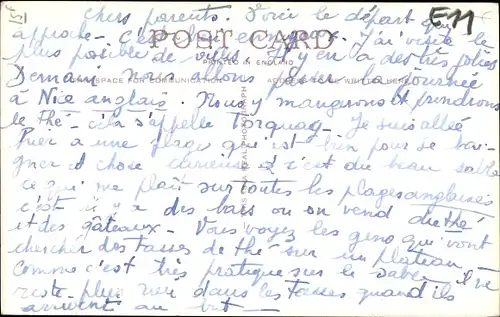 E11
chers parents. Voici le départ qui
approche - c'est J'ai visité le
POST CARD
plus possible de villes. Il y en a des très jolies
PRINTED IN ENGLAND
Demain nous allons passer la journée
SPACE FOR COMMUNICATION
à Nice anglais. Nous y mangerons et prendrons
le thé - cela s'appelle Torquay - Je suis allée
hier à une plage qui est bien pour se bai-
gner et chose curieuse c'est du beau sable
ce qui me plaît sur toutes les plages anglaises
c'est il y a des bars ou on vend du thé
et des gâteaux - Vous voyez les gens qui vont
chercher des tasses de thé sur un plateau -
Comme c'est très pratique sur le sable il ne
reste plus rien dans les tasses quand ils
arrivent au but -
REAL PHOTOGRAPH